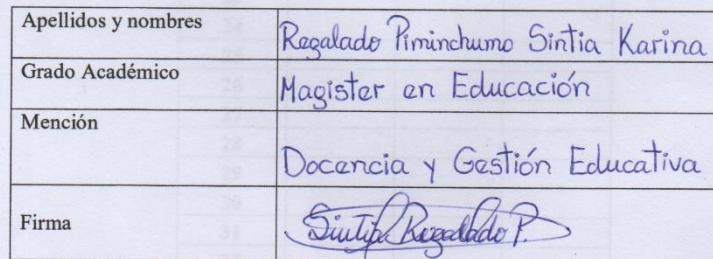 Apellidos y nombres
Regalado Piminchumo Sintia Karina
Grado Académico
Magister en Educación
Mención
Docencia y Gestión Educativa
Firma
Sintia Regalado P.